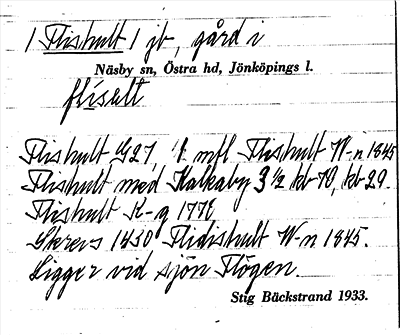 / Flishult / jb, gård i
Näsby sn, Östra hd, Jönköpings l.
flíselt
Flishult G27, 1/1 mtl Flishult W-n 1845
Flishult med Kalkaby 3 1/2 kb-70, kb-29.
Flishult K-g 177
Skrevs 1430 Flidishult W-n 1845.
Ligger vid sjön Flögen.
Stig Bäckstrand 1933.